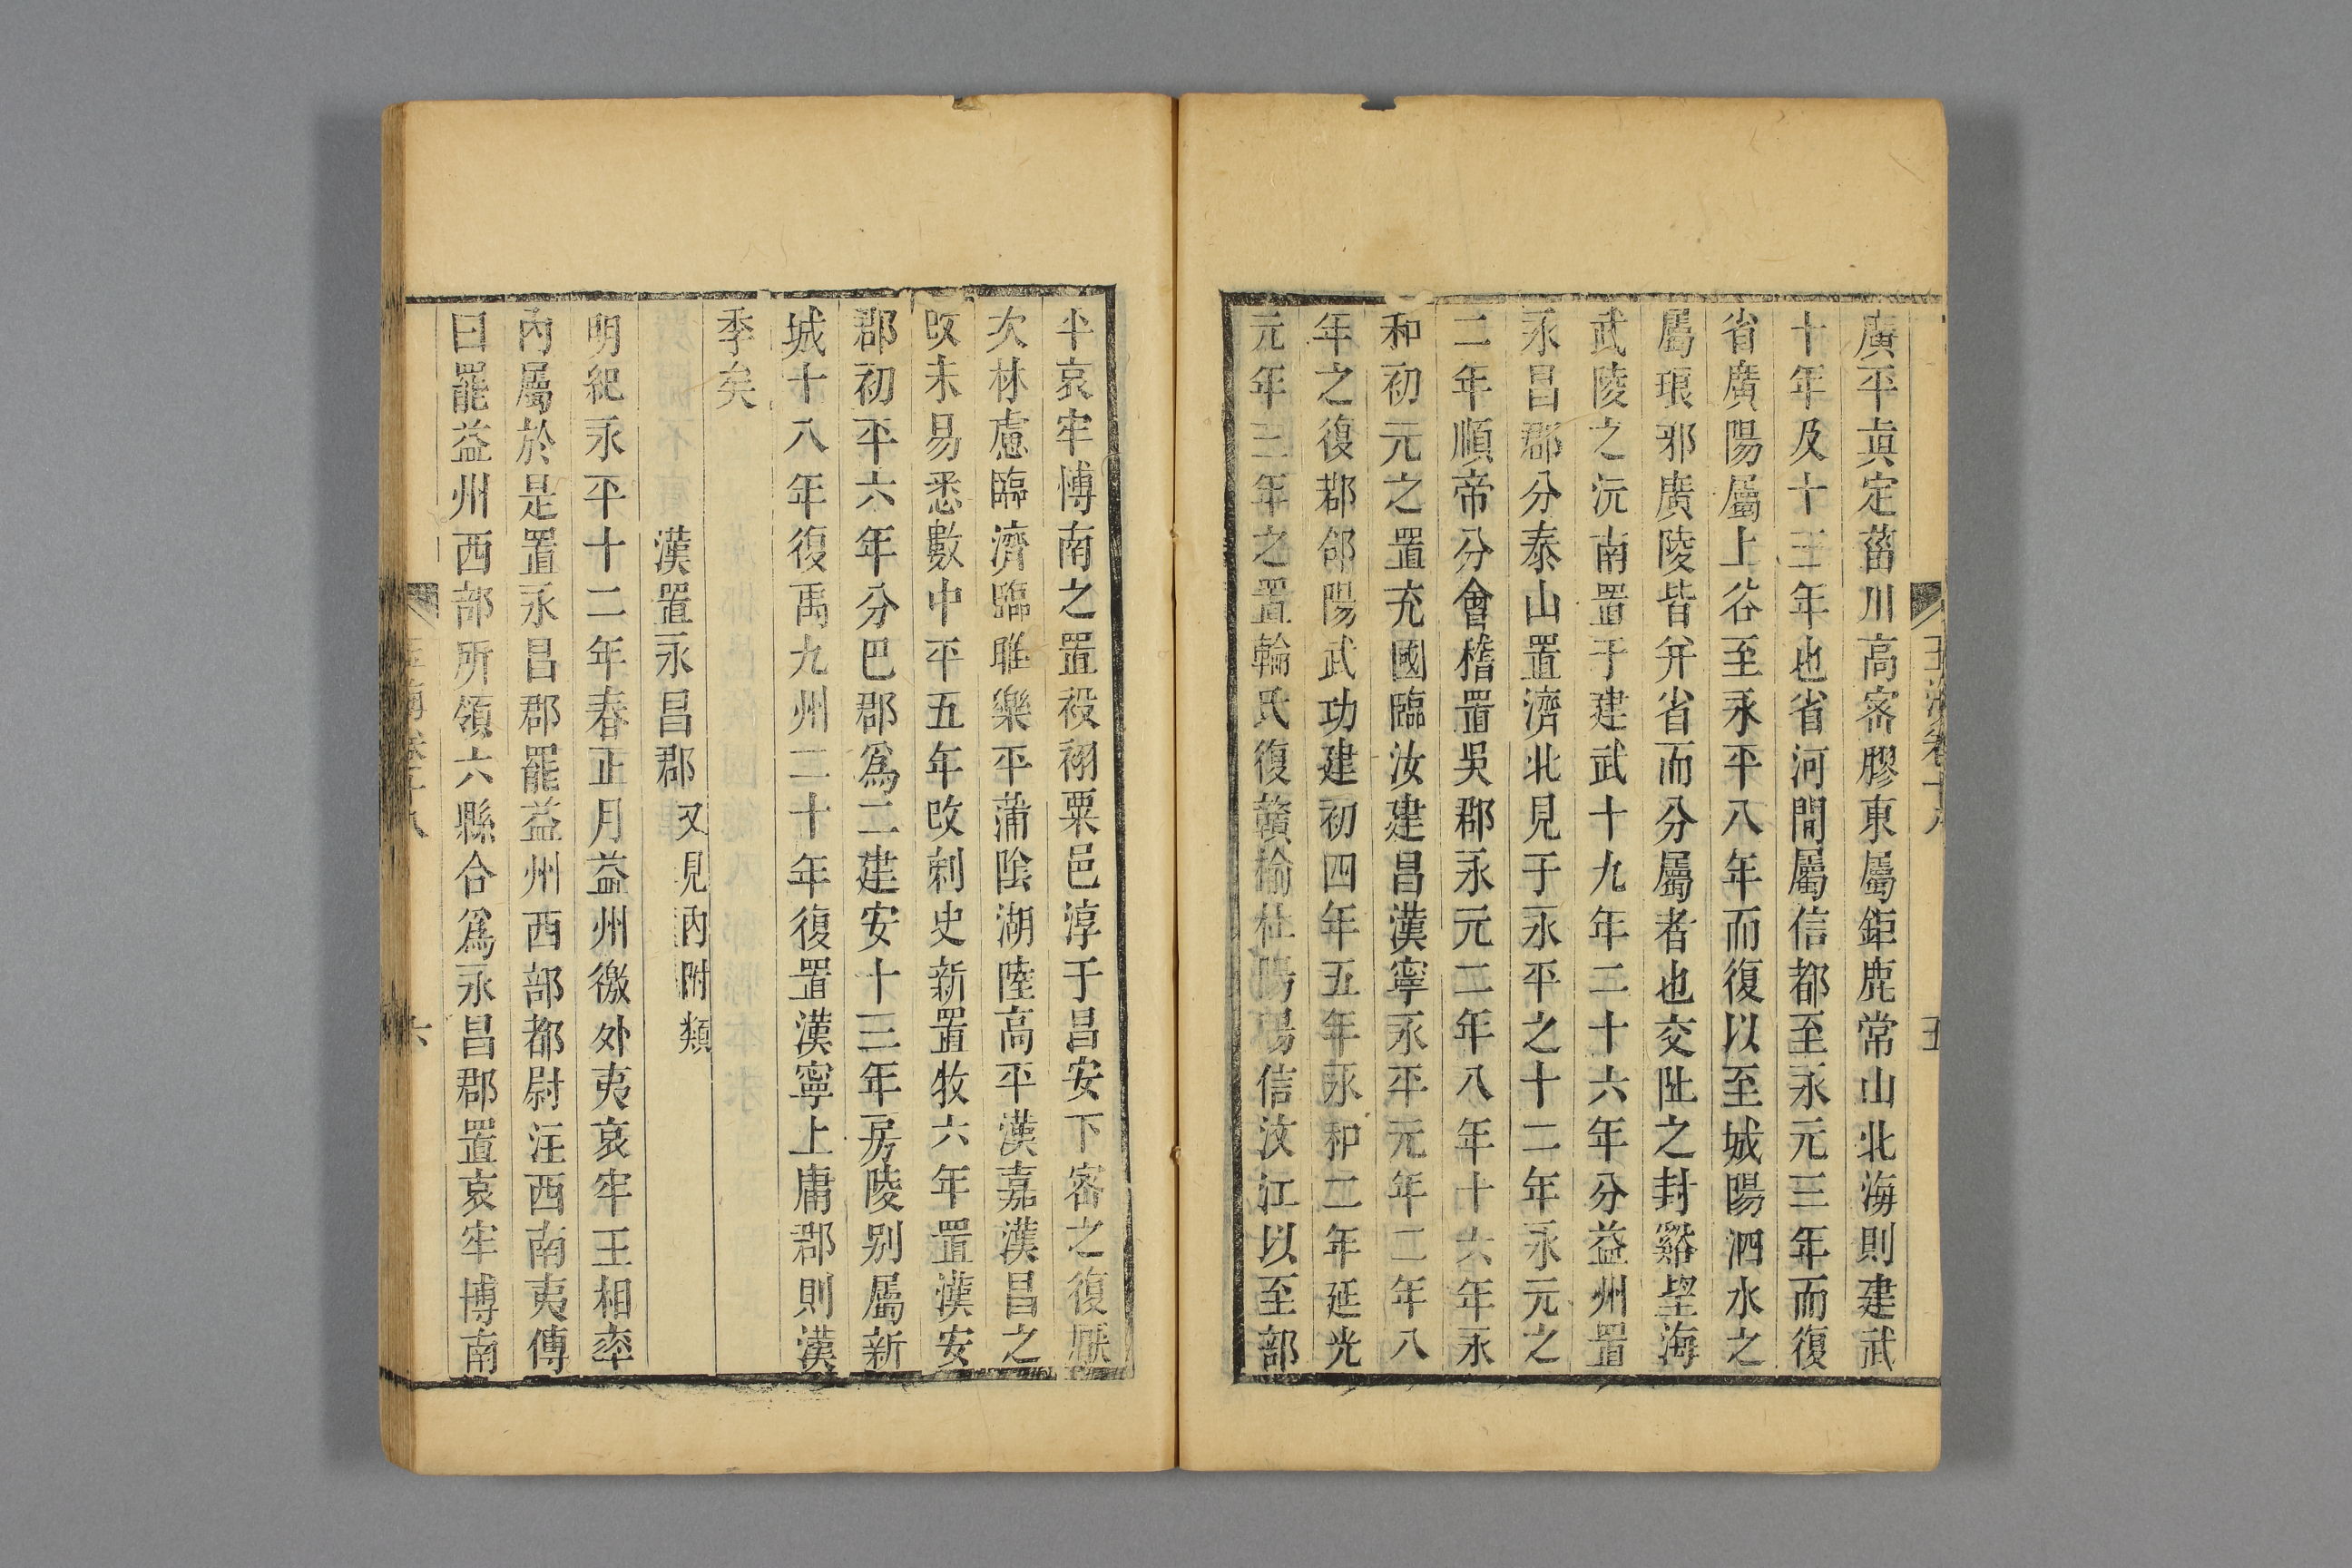 玉海卷十八 五
廣平真定菑川高密膠東屬鉅鹿常山北海則建武
十年及十三年也省河間屬信都至永元三年而復
省廣陽屬上谷至永平八年而復以至城陽泗水之
屬琅邪廣陵皆并省而分屬者也交阯之封谿望海
武陵之沅南置于建武十九年二十六年分益州置
永昌郡分泰山置濟北見于永平之十二年永元之
二年順帝分會稽置吳郡永元二年八年十六年永
和初元之置充國臨汝建昌漢寧永平元年二年八
年之復郡郃陽武功建初四年五年永和二年延光
元年三年之置輪氏復贛榆杜陽陽信汶江以至部
半哀牢博南之置祋祤粟邑淳于昌安下密之復厭
次林慮臨濟臨雎樂平蒲陰湖陸高平漢嘉漢昌之
改未易悉數中平五年改刺史新置牧六年置漢安
郡初平六年分巴郡爲二建安十三年房陵别屬新
城十八年復禹九州二十年復置漢寧上庸郡則漢
季矣
漢置永昌郡 又見內附類
明紀永平十二年春正月益州徼外夷哀牢王相率
內屬於是置永昌郡罷益州西部都尉注西南夷傳
曰罷益州西部所領六縣合爲永昌郡置哀牢博南
六